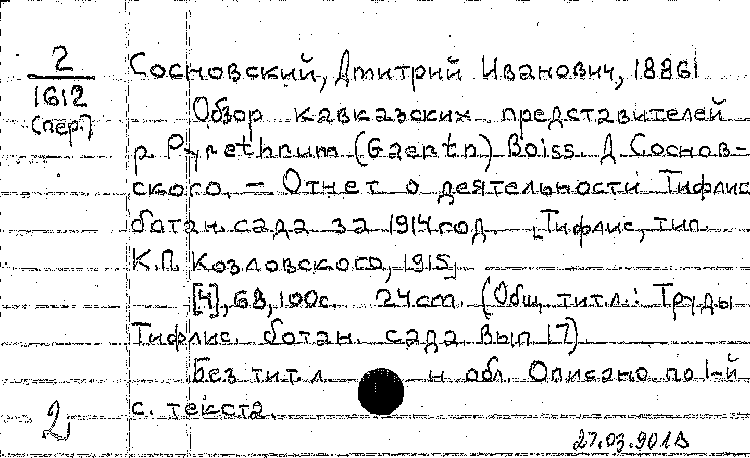 2
1612
(пер.)
Сосновский, Дмитрий Иванович, 1886
Обзор кавказских представителей
р. Pyrethrum (Gaertn) Boiss. Д Соснов-
ского. — Отчет о деятельности Тифлис
ботан. сада за 1914 год. [Тифлис, тип.
К.П. Козловского, 1915]
[4], 68, 100 с. 24 cm. (Общ. тит. л.: Труды
Тифлис. ботан. сада. Вып 17)
Без тит. л и обл. Описано по 1-й
с. текста.
2
27.03.90